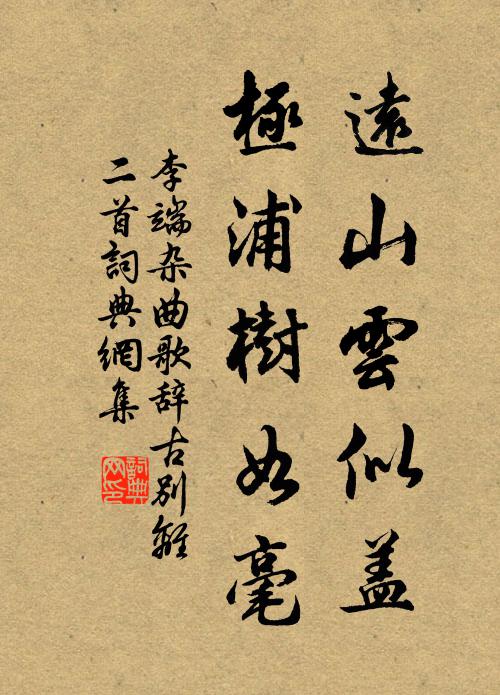 遠山雲似盖
極浦樹如毫
李端杂曲歌辞古别離
二首詞典網集
詞典
网印